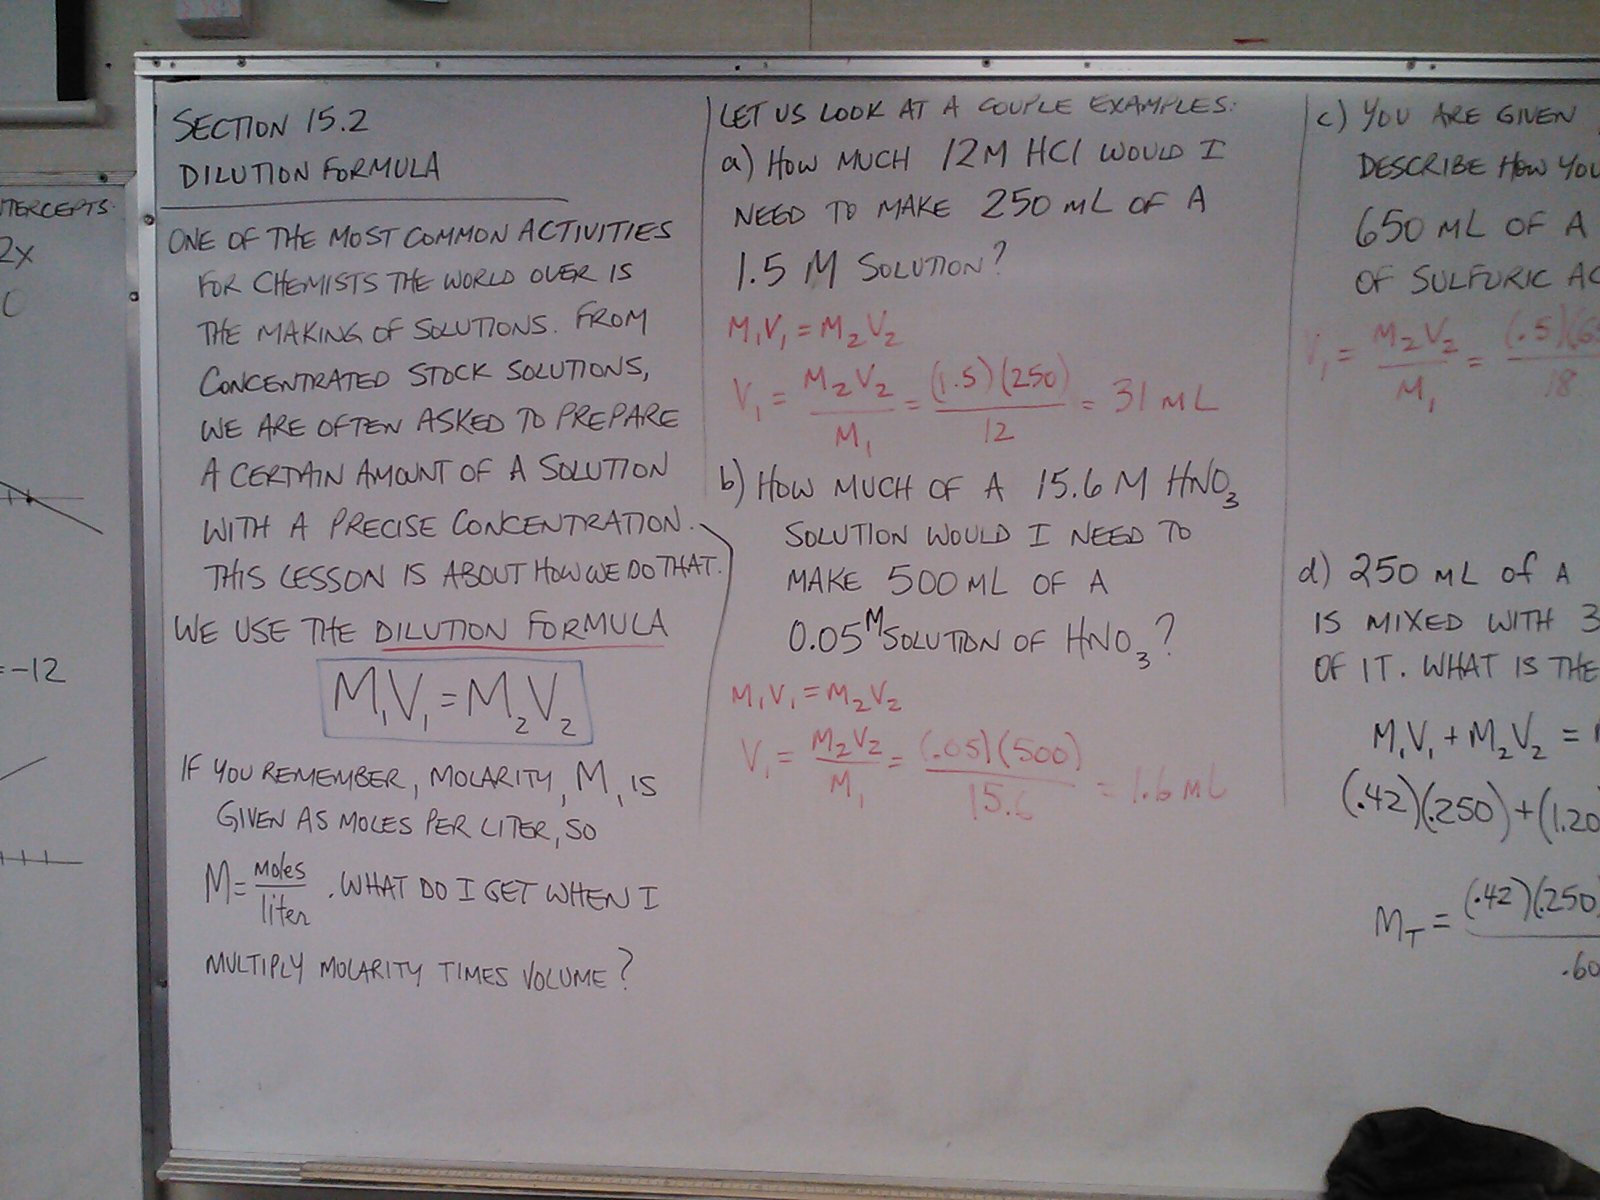 NTERCEPTS:
2x
=-12
SECTION 15.2
DILUTION FORMULA
ONE OF THE MOST COMMON ACTIVITIES
FOR CHEMISTS THE WORLD OVER IS
THE MAKING OF SOLUTIONS. FROM
CONCENTRATED STOCK SOLUTIONS,
WE ARE OFTEN ASKED TO PREPARE
A CERTAIN AMOUNT OF A SOLUTION
WITH A PRECISE CONCENTRATION.
THIS LESSON IS ABOUT HOW WE DO THAT.
WE USE THE DILUTION FORMULA
M₁V₁ = M₂V₂
IF YOU REMEMBER, MOLARITY, M, IS
GIVEN AS MOLES PER LITER, SO
M = moles/liter . WHAT DO I GET WHEN I
MULTIPLY MOLARITY TIMES VOLUME?
LET US LOOK AT A COUPLE EXAMPLES:
a) HOW MUCH 12M HCl WOULD I
NEED TO MAKE 250 mL OF A
1.5 M SOLUTION?
M₁V₁ = M₂V₂
V₁ = M₂V₂/M₁ = (1.5)(250)/12 = 31 mL
b) HOW MUCH OF A 15.6 M HNO₃
SOLUTION WOULD I NEED TO
MAKE 500 mL OF A
0.05 M SOLUTION OF HNO₃?
M₁V₁ = M₂V₂
V₁ = M₂V₂/M₁ = (.05)(500)/15.6 = 1.6 mL
c) YOU ARE GIVEN
DESCRIBE HOW YOU
650 mL OF A
OF SULFURIC AC
V₁ = M₂V₂/M₁ = (.5)(65/18
d) 250 mL of A
IS MIXED WITH 3
OF IT. WHAT IS THE
M₁V₁ + M₂V₂ =
(.42)(.250) + (1.20
M_T = (.42)(.250)/.60